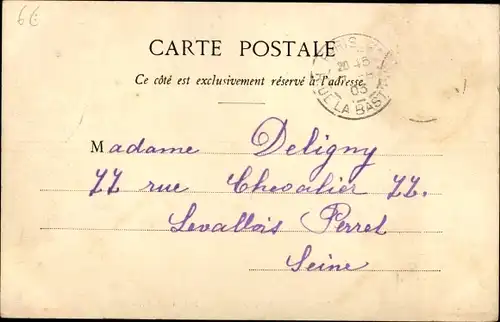 6€
CARTE POSTALE
Ce côté est exclusivement réservé à l'adresse
PARIS
R. DE LA BASTI
Madame Deligny
77 rue Chevalier 77.
Levallois Perret
Seine